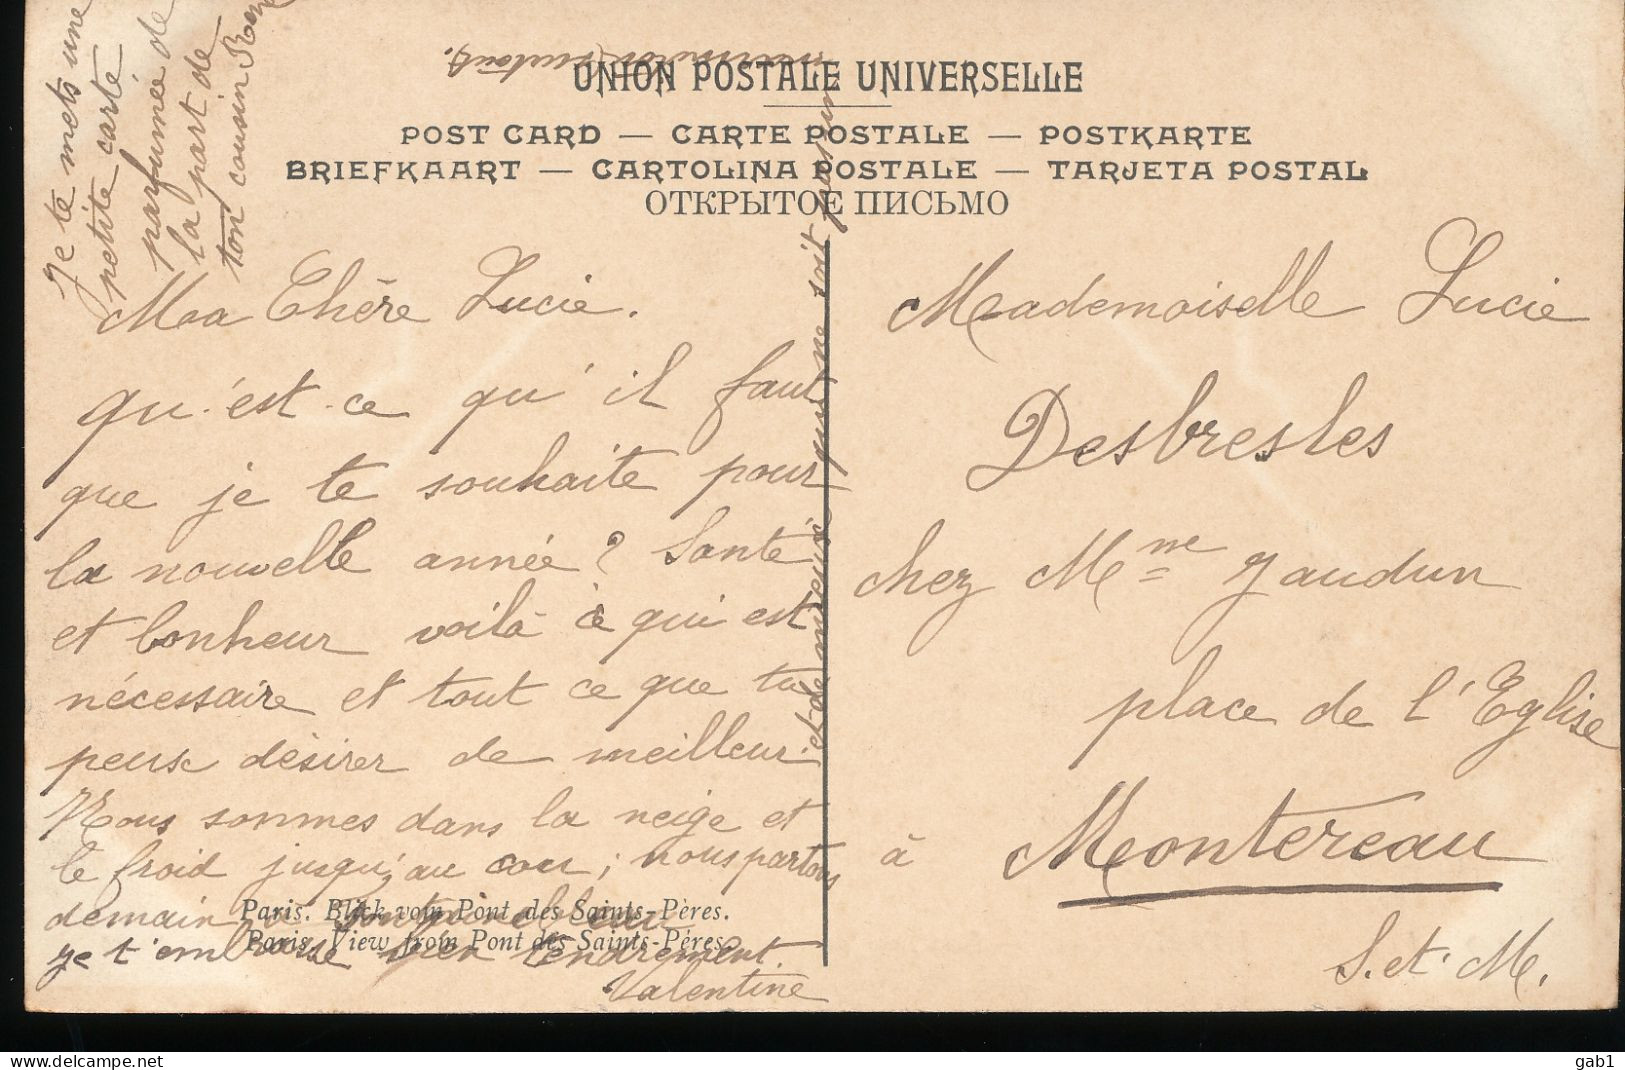 Je te mets une
petite carte
parfumée de
la part de
ton cousin
UNION POSTALE UNIVERSELLE
POST CARD — CARTE POSTALE — POSTKARTE
BRIEFKAART — CARTOLINA POSTALE — TARJETA POSTAL
ОТКРЫТОЕ ПИСЬМО
Ma Chère Lucie.
qu'est-ce qu'il faut
que je te souhaite pour
la nouvelle année? Santé
et bonheur voilà ce qui est
nécessaire et tout ce que tu
peux désirer de meilleur.
Nous sommes dans la neige et
le froid jusqu'au cou; nous partons
demain
je t'embrasse bien tendrement.
Valentine
Paris. Blick vom Pont des Saints-Pères.
Paris. View from Pont des Saints-Pères.
qui ne soit pas un
Mademoiselle Lucie
Desbresles
chez Mme Jaudun
place de l'Eglise
à Montereau
S. et. M.
gab1